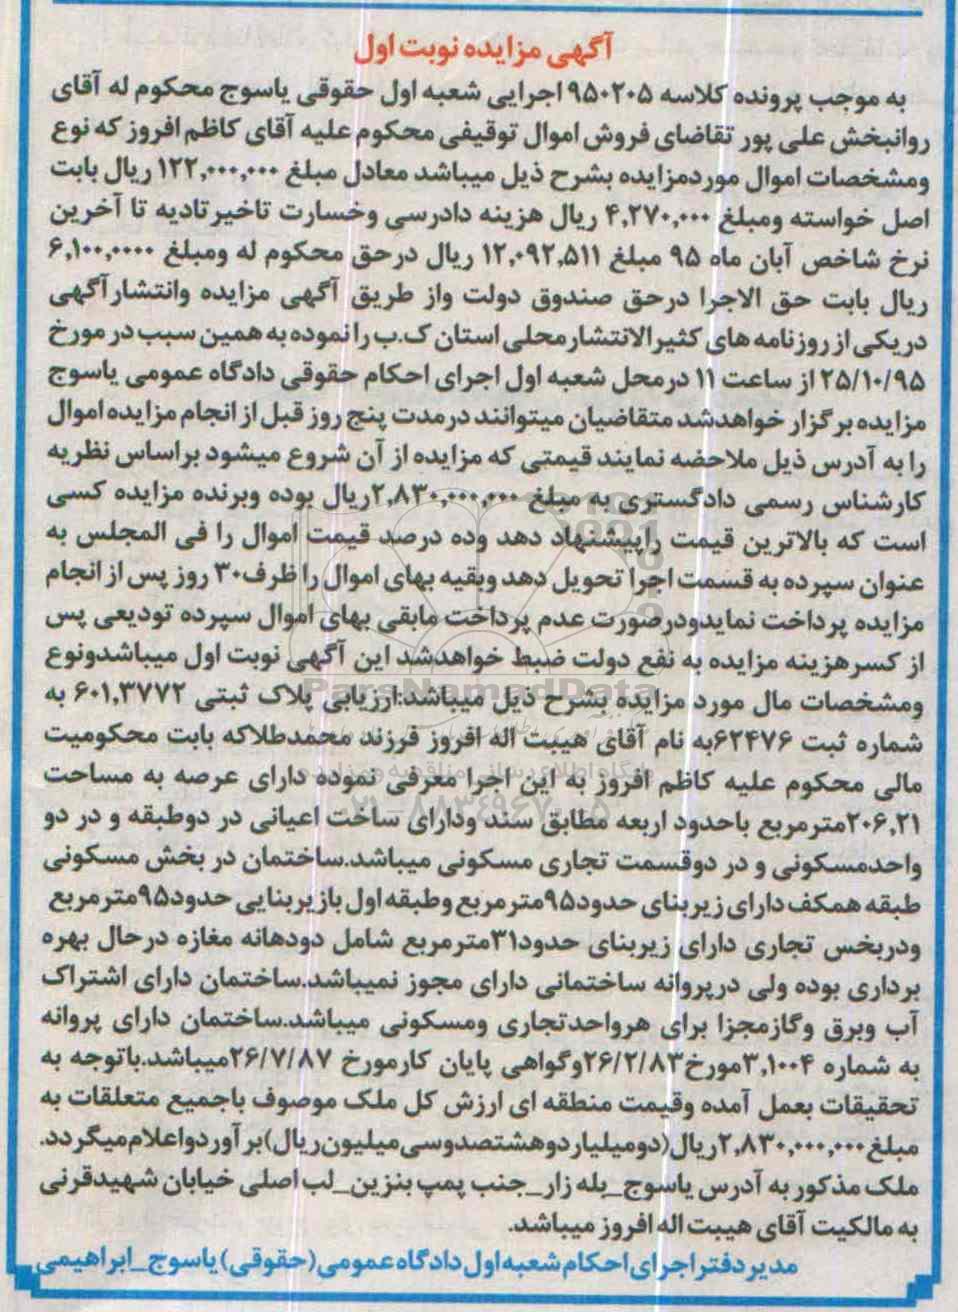 آگهی مزایده نوبت اول
به موجب پرونده کلاسه ۹۵۰۲۰۵ اجرایی شعبه اول حقوقی یاسوج محکوم له آقای
روانبخش علی پور تقاضای فروش اموال توقیفی محکوم علیه آقای کاظم افروز که نوع
ومشخصات اموال موردمزایده بشرح ذیل میباشد معادل مبلغ ۱۲۲,۰۰۰,۰۰۰ ریال بابت
اصل خواسته ومبلغ ۴,۲۷۰,۰۰۰ ریال هزینه دادرسی وخسارت تاخیرتادیه تا آخرین
نرخ شاخص آبان ماه ۹۵ مبلغ ۱۲,۰۹۲,۵۱۱ ریال درحق محکوم له ومبلغ ۶,۱۰۰,۰۰۰۰
ریال بابت حق الاجرا درحق صندوق دولت واز طریق آگهی مزایده وانتشارآگهی
دریکی از روزنامه های کثیرالانتشارمحلی استان ک.ب را نموده به همین سبب در مورخ
۲۵/۱۰/۹۵ از ساعت ۱۱ درمحل شعبه اول اجرای احکام حقوقی دادگاه عمومی یاسوج
مزایده برگزار خواهدشد متقاضیان میتوانند درمدت پنج روز قبل از انجام مزایده اموال
را به آدرس ذیل ملاحضه نمایند قیمتی که مزایده از آن شروع میشود براساس نظریه
کارشناس رسمی دادگستری به مبلغ ۲,۸۳۰,۰۰۰,۰۰۰ریال بوده وبرنده مزایده کسی
است که بالاترین قیمت راپیشنهاد دهد وده درصد قیمت اموال را فی المجلس به
عنوان سپرده به قسمت اجرا تحویل دهد وبقیه بهای اموال را ظرف۳۰ روز پس از انجام
مزایده پرداخت نمایدودرصورت عدم پرداخت مابقی بهای اموال سپرده تودیعی پس
از کسرهزینه مزایده به نفع دولت ضبط خواهدشد این آگهی نوبت اول میباشدونوع
ومشخصات مال مورد مزایده بشرح ذیل میباشد:ارزیابی پلاک ثبتی ۶۰۱,۳۷۷۲ به
شماره ثبت ۶۲۴۷۶به نام آقای هیبت اله افروز فرزند محمدطلاکه بابت محکومیت
مالی محکوم علیه کاظم افروز به این اجرا معرفی نموده دارای عرصه به مساحت
۲۰۶,۲۱مترمربع باحدود اربعه مطابق سند ودارای ساخت اعیانی در دوطبقه و در دو
واحدمسکونی و در دوقسمت تجاری مسکونی میباشد.ساختمان در بخش مسکونی
طبقه همکف دارای زیربنای حدود۹۵مترمربع وطبقه اول بازیربنایی حدود۹۵مترمربع
ودربخس تجاری دارای زیربنای حدود۳۱مترمربع شامل دودهانه مغازه درحال بهره
برداری بوده ولی درپروانه ساختمانی دارای مجوز نمیباشد.ساختمان دارای اشتراک
آب وبرق وگازمجزا برای هرواحدتجاری ومسکونی میباشد.ساختمان دارای پروانه
به شماره ۳,۱۰۰۴مورخ۲۶/۲/۸۳وگواهی پایان کارمورخ ۲۶/۷/۸۷میباشد.باتوجه به
تحقیقات بعمل آمده وقیمت منطقه ای ارزش کل ملک موصوف باجمیع متعلقات به
مبلغ ۲,۸۳۰,۰۰۰,۰۰۰ریال(دومیلیاردوهشتصدوسی میلیون ریال)برآوردواعلام میگردد.
ملک مذکور به آدرس یاسوج_بله زار_جنب پمپ بنزین_لب اصلی خیابان شهیدقرنی
به مالکیت آقای هیبت اله افروز میباشد.
مدیردفتراجرای احکام شعبه اول دادگاه عمومی(حقوقی) یاسوج_ابراهیمی
ParsNamadData
پایگاه اطلاع رسانی مناقصه و مزایده
۰۲۱-۸۸۳۴۹۶۷۰-۵